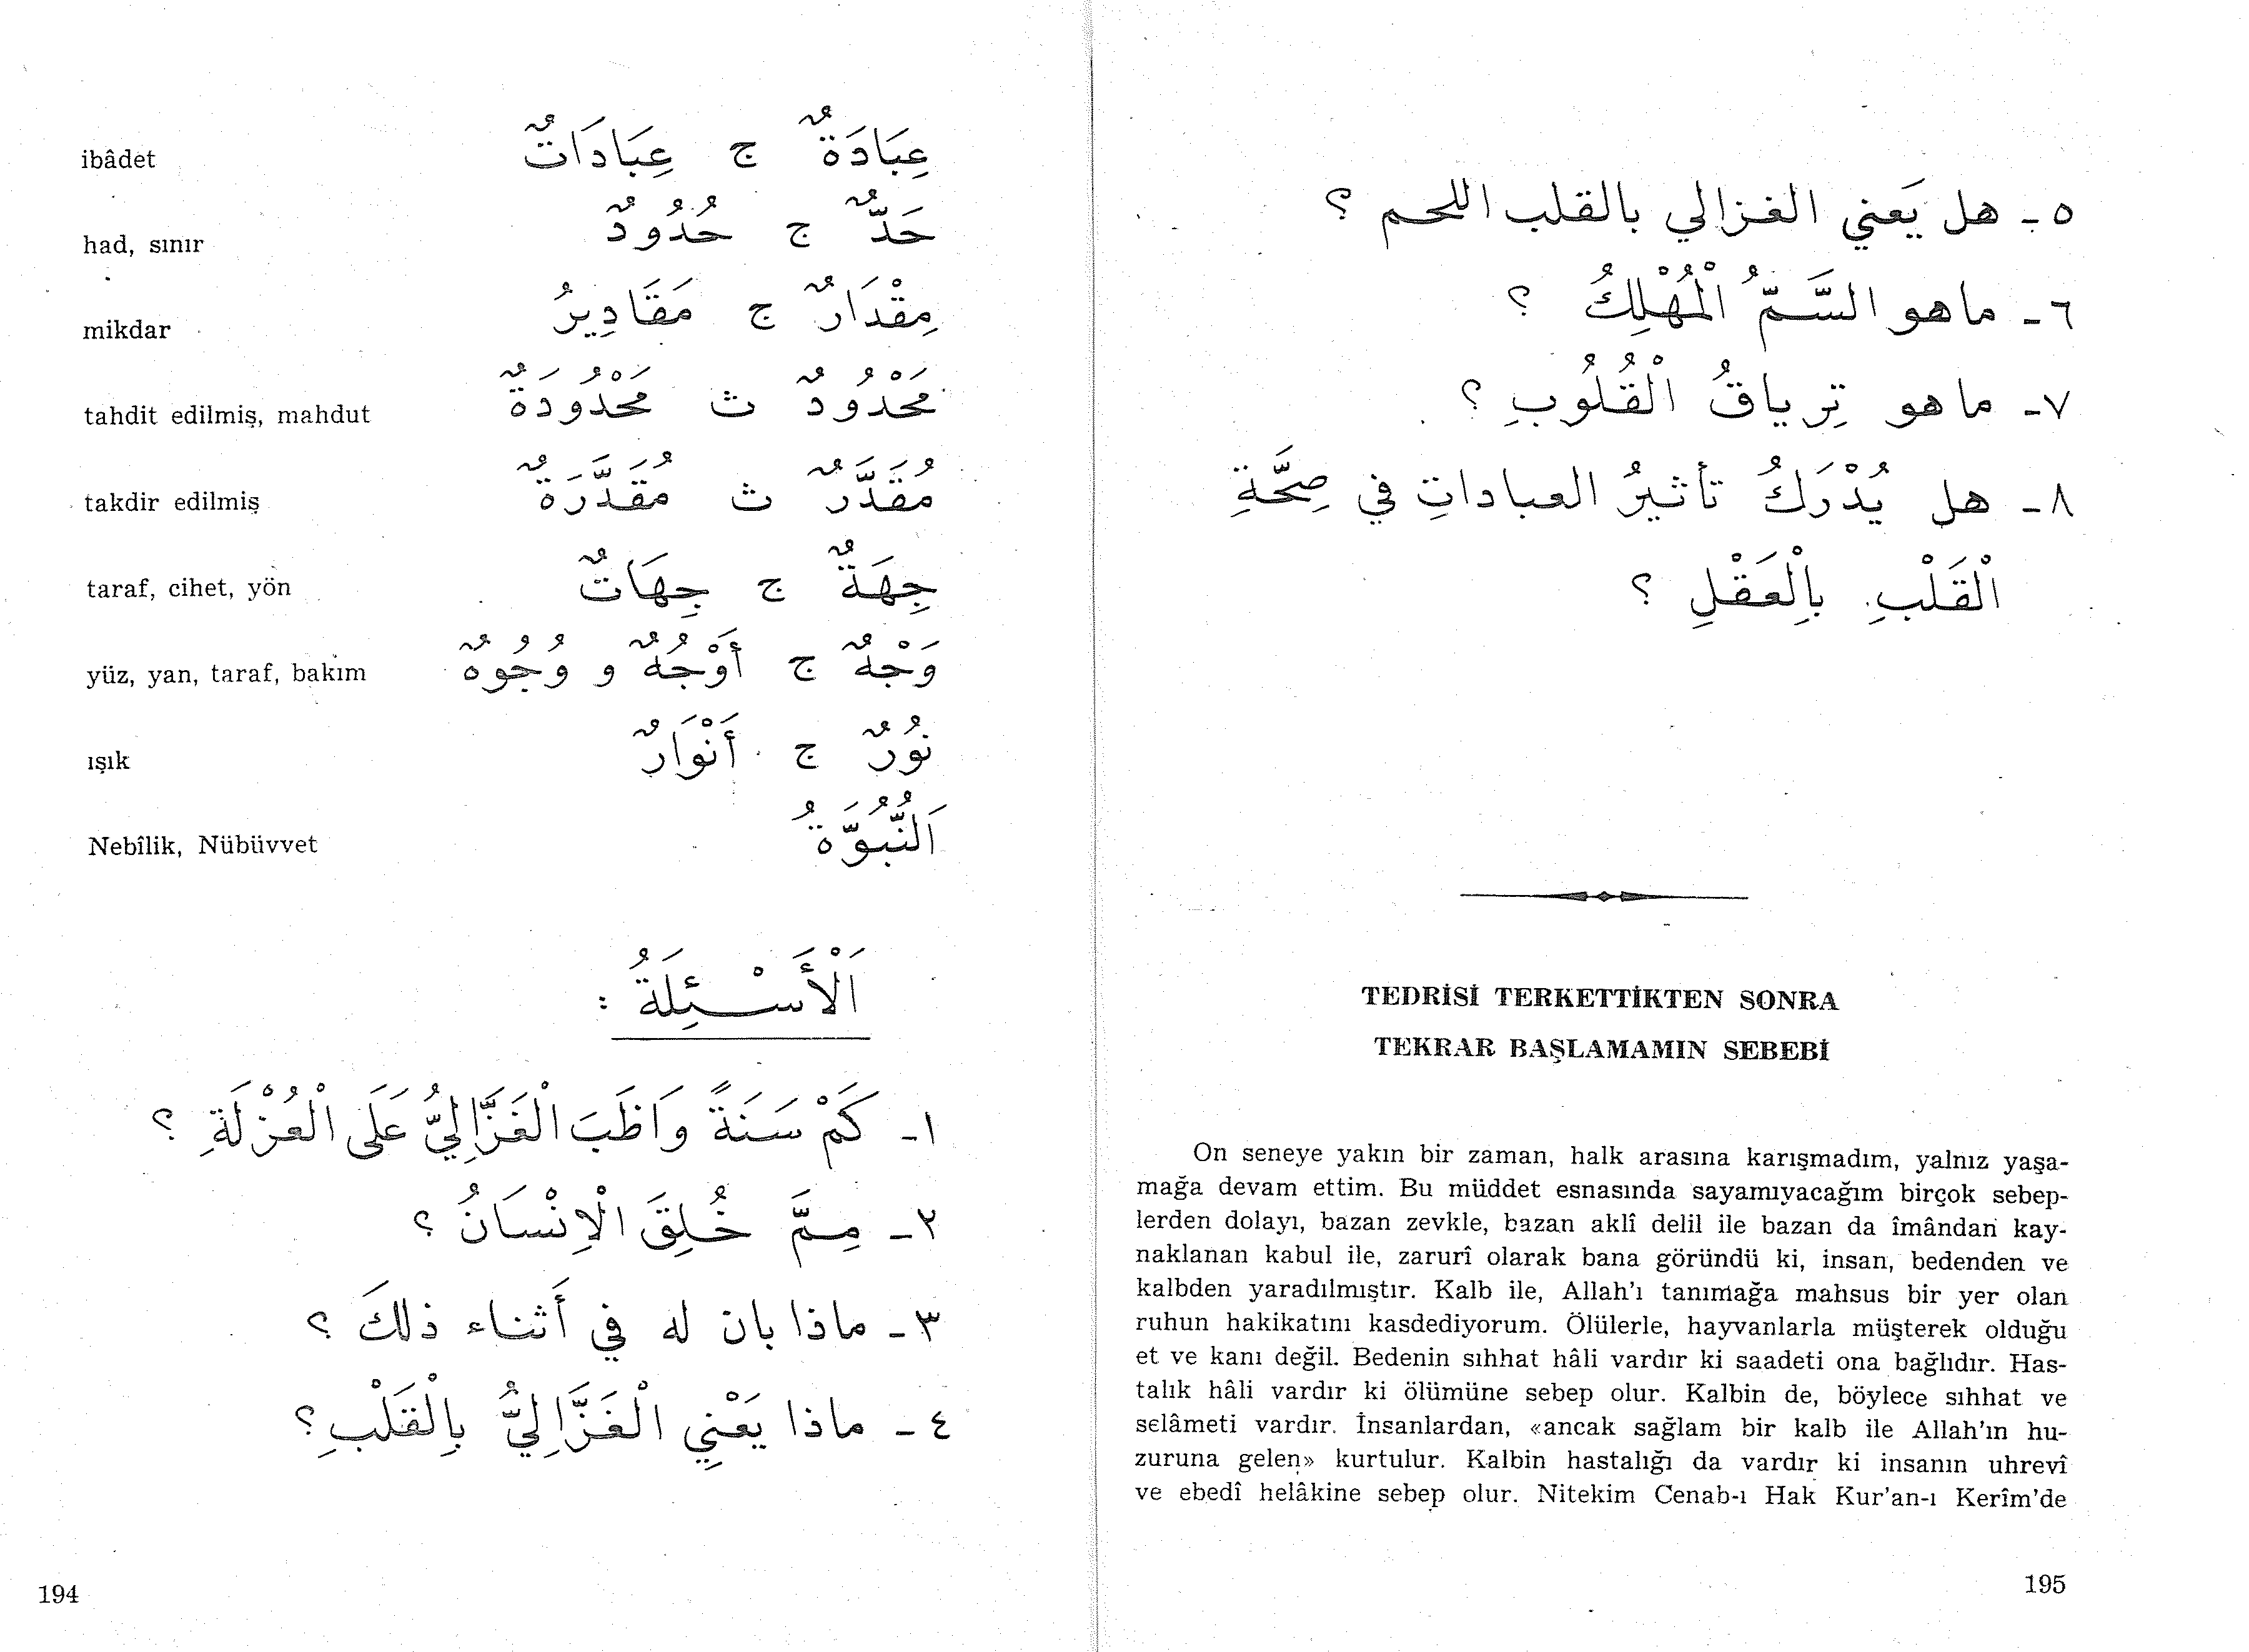 ibâdet عِبَادَةٌ ج عِبَادَاتٌ
had, sınır حَدٌّ ج حُدُودٌ
mikdar مِقْدَارٌ ج مَقَادِيرُ
tahdit edilmiş, mahdut مَحْدُودٌ ث مَحْدُودَةٌ
takdir edilmiş مُقَدَّرٌ ث مُقَدَّرَةٌ
taraf, cihet, yön جِهَةٌ ج جِهَاتٌ
yüz, yan, taraf, bakım وَجْهٌ ج أَوْجُهٌ و وُجُوهٌ
ışık نُورٌ ج أَنْوَارٌ
Nebîlik, Nübüvvet اَلنُّبُوَّةُ
اَلْأَسْئِلَةُ :
١ـ كَمْ سَنَةً وَاظَبَ الْغَزَّالِيُّ عَلَى الْعُزْلَةِ ؟
٢ـ مِمَّ خُلِقَ الْاِنْسَانُ ؟
٣ـ ماذا بان له في أَثناء ذلكَ ؟
٤ـ ماذا يَعْنِي الْغَزَّالِيُّ بِالْقَلْبِ ؟
194
٥ـ هل يَعني الغزالي بالقلب اللحم ؟
٦ـ ماهو السَّمُّ الْمُهْلِكُ ؟
٧ـ ماهو تِرياقُ الْقُلُوبِ ؟
٨ـ هل يُدْرَكُ تأثيرُ العباداتِ في صِحَّةِ
الْقَلْبِ بِالْعَقْلِ ؟
TEDRİSİ TERKETTİKTEN SONRA
TEKRAR BAŞLAMAMIN SEBEBİ
On seneye yakın bir zaman, halk arasına karışmadım, yalnız yaşa-
mağa devam ettim. Bu müddet esnasında sayamıyacağım birçok sebep-
lerden dolayı, bazan zevkle, bazan aklî delil ile bazan da îmândan kay-
naklanan kabul ile, zarurî olarak bana göründü ki, insan, bedenden ve
kalbden yaradılmıştır. Kalb ile, Allah'ı tanımağa mahsus bir yer olan
ruhun hakikatını kasdediyorum. Ölülerle, hayvanlarla müşterek olduğu
et ve kanı değil. Bedenin sıhhat hâli vardır ki saadeti ona bağlıdır. Has-
talık hâli vardır ki ölümüne sebep olur. Kalbin de, böylece sıhhat ve
selâmeti vardır. İnsanlardan, «ancak sağlam bir kalb ile Allah'ın hu-
zuruna gelen» kurtulur. Kalbin hastalığı da vardır ki insanın uhrevî
ve ebedî helâkine sebep olur. Nitekim Cenab-ı Hak Kur'an-ı Kerîm'de
195